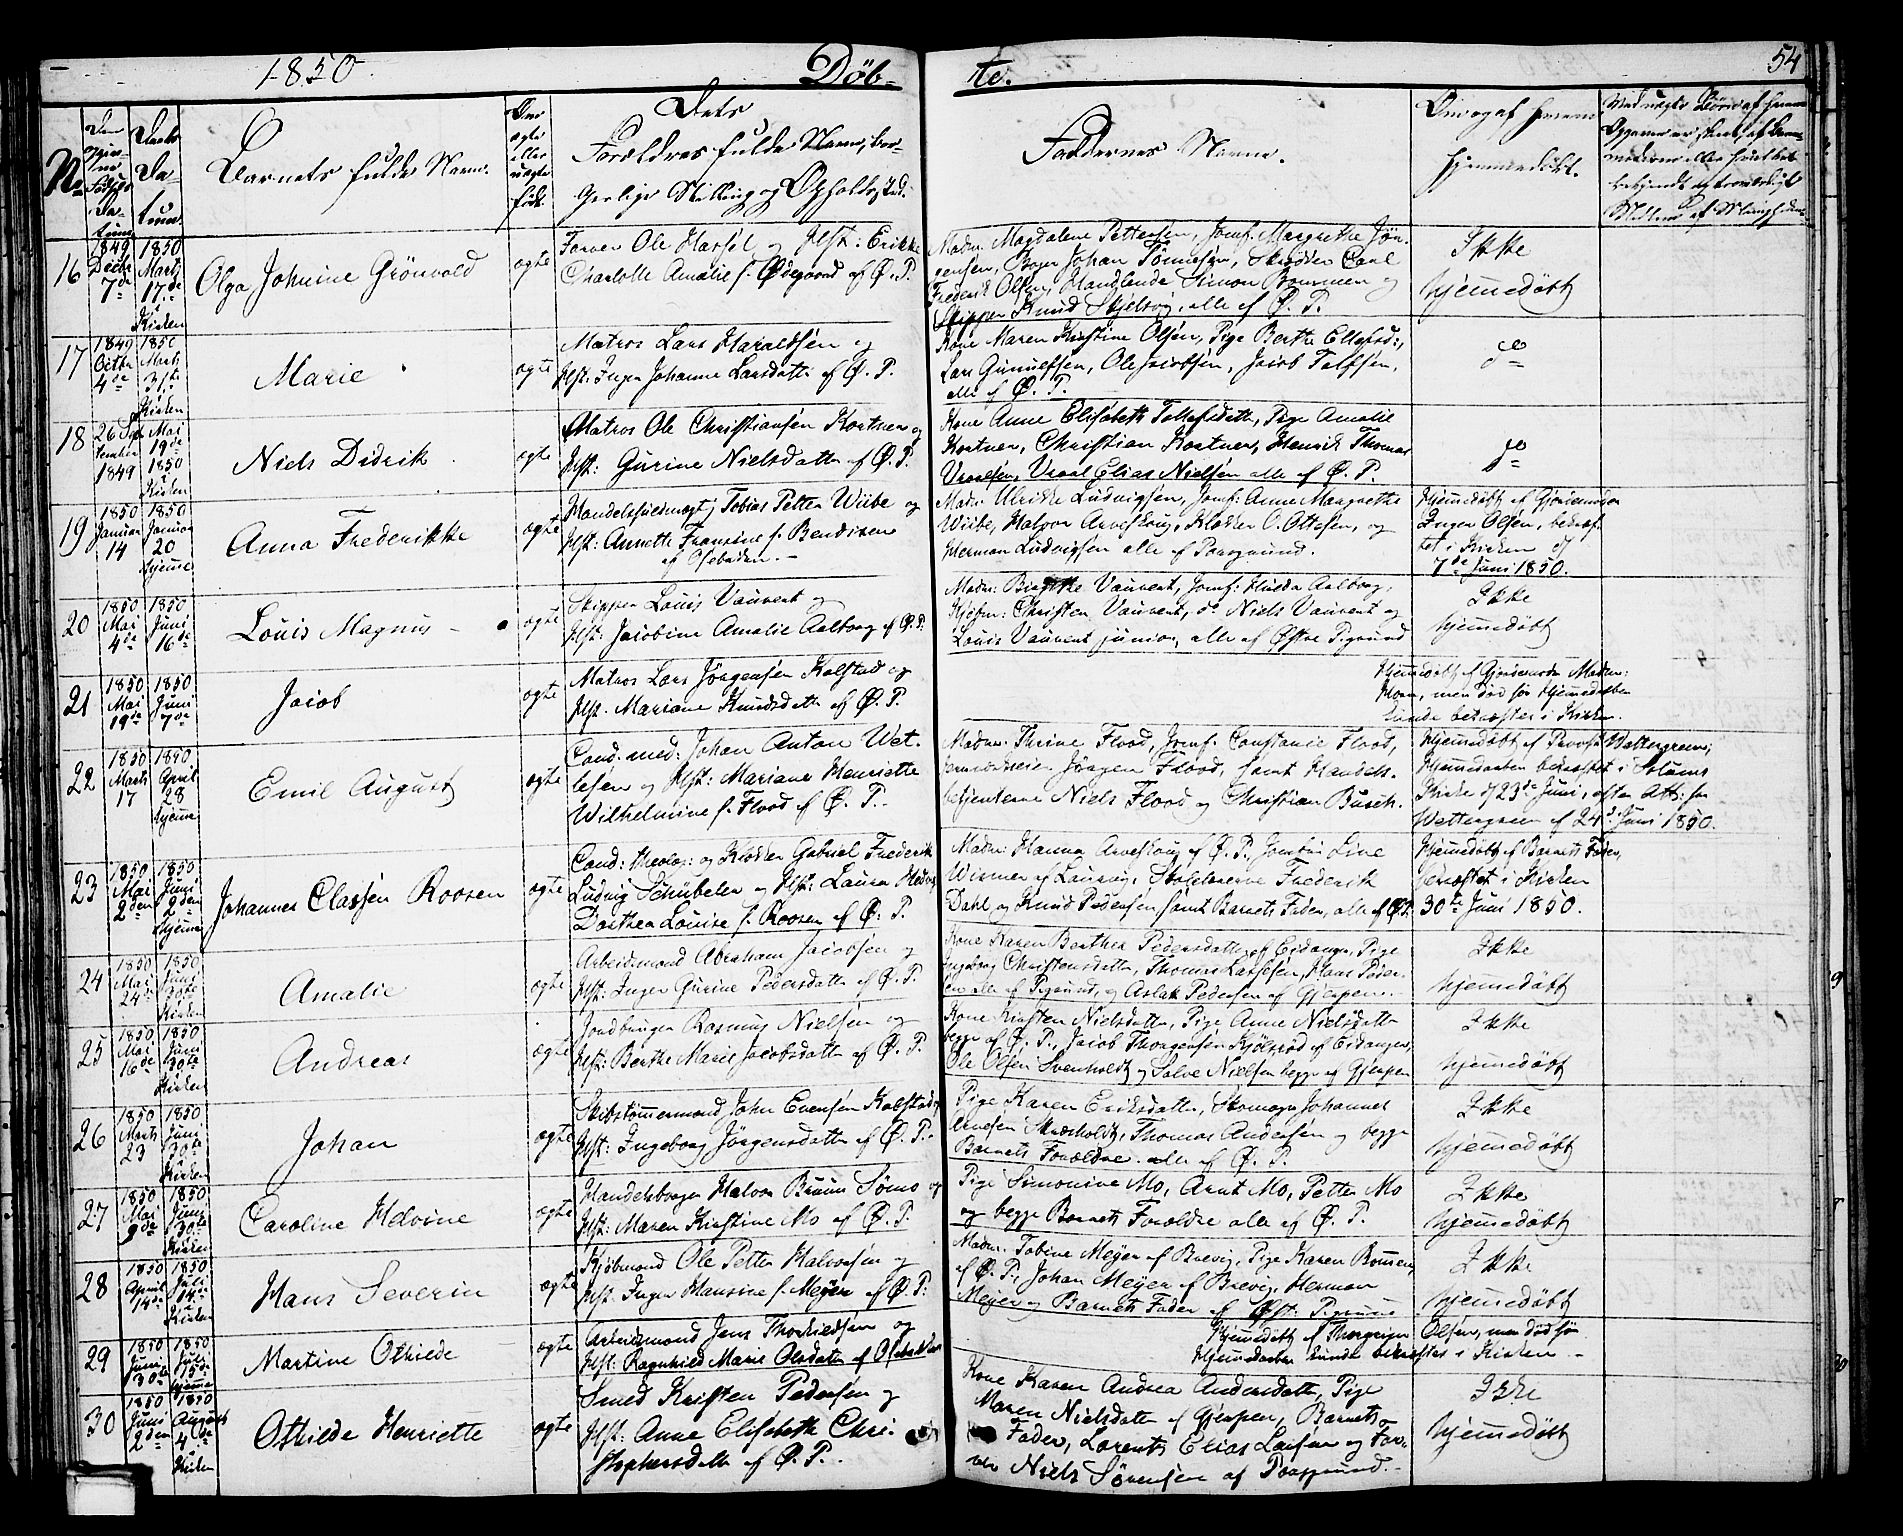 1850.
Døb-
te.
54
No
Den
Fødsels
Da-
tum
Daabs
Da-
tum.
Barnets fulde Navn.
Om
ægte
eller
uægte
født.
Dets
Forældres fulde Navn, bor-
gerlige Stilling og Opholdssted.
Faddernes Navne.
Om og af hvem
hjemmedøbt.
16
1849
Decbr
7de
1850
Marts
17de
i
Kirken
Olga Johnine Grönvold
ægte
Farver Ole Hassel og Hst: Erikke
Charlotte Amalie f. Ødegaard af Ø. P.
Madm: Magdalene Pettersen, Jomf. Margrethe Jør-
gensen, Johan Tönnesen, Skrædder Carl
Frederik Olsen, Handlende Simon og
Skipper Knud alle af Ø. P.
Ikke
hjemmedøbt
17
1849
Octbr
4de
1850
Marts
31te
i
Kirken
Marie
ægte
Matros Lars Haraldsen og
Hst: Inger Johanne Larsdatter af Ø. P.
Kone Maren Kirstine Olsen, Pige Berthe Ellefsd:,
Lars Gunulfsen, Ole Jacobsen, Jacob
alle af Ø. P.
do
18
26 Sep
tember
1849
Mai
19de
1850
i
Kirken
Niels Didrik
ægte
Matros Ole Christiansen Kortner og
Hst: Gurine Nielsdatter af Ø. P.
Kone Anne Elisabeth Tollefsdatter, Pige Amalie
Kortner, Christian Kortner, Henrik Thomas
Elias Nielsen alle af Ø. P.
do
19
1850
Januar
14
1850
Januar
20
hjemme
Anna Frederikke
ægte
Handelsfuldmægtj Tobias Petter Wiibe og
Hst: Annette Fransine f. Bendixen
af Osebakken
Mad: Ulrikke Ludvigsen, Jomf: Anne Margrethe
Wiibe, Halvor Arveskoug, Klokker O. Ottesen, og
Herman Ludvigsen alle af Porsgrund.
Hjemmedøbt af Gjordemoder
Inger Olsen, bekræf-
tet i Kirken
7de Juni 1850.
20
1850
Mai
4de
1850
Juni
16de
Louis Magnus
ægte
Skipper Louis Vauvert og
Hst: Jacobine Amalie Aalborg af Ø. P.
Madm: Birgitte Vauvert, Jomf: Hulda Aalborg,
Kjøbm: Christen Vauvert, do Niels Vauvert og
Louis Vauvert junior, alle af Østre Pigrund
Ikke
hjemmedøbt
21
1850
Mai
19de
1850
Juni
7de
Jacob
ægte
Matros Lars Jörgensen Kalstad og
Hst: Mariane Knudsdatter af Ø. P.
Hjemmedøbt af Gjordemoder Madm:
Horn, men død før Hjemmedaaben
kunde bekræftes i Kirken.
22
1850
Marts
17
1850
April
28
hjemme
Emil August
ægte
Cand: med: Johan Anton Wet-
lesen og Hst: Mariane Henriette
Wilhelmine f. Flood af Ø. P.
Madm: Thrine Flood, Jomf: Constance Flood,
Jörgen Flood, samt Handels-
betjenterne Niels Flood og Christian Busch.
Hjemmedøbt af Provst Wettergreen,
Hjemmedaaben bekræftet i Solums
Kirke d/ 23de Juni, efter Att: fra
Wettergreen af 24de Juni 1850.
23
1850
Mai
2den
1850
Juni
2den
hjemme
Johannes Classen Roosen
ægte
Cand: theolog: og Klokker Gabriel Frederik
Ludvig Schübeler og Hst: Laura Hedvig
Dorthea Louise f. Roosen af Ø. P.
Madm: Hanna Arveskoug af Ø. P., Jomfru Line
Wismer af Laurvig, Skolelærerne Frederik
Dahl og Knud Pedersen samt Barnets Fader, alle af Ø. P.
Hjemmedøbt af Barnets Fader,
bekræftet i Kirken
30te Juni 1850.
24
1850
Mai
24de
1850
Juni
30te
i
Kirken
Amalie
ægte
Arbeidsmand Abraham Jacobsen og
Hst: Inger Gurine Pedersdatter af Ø. P.
Kone Karen Berthea Pedersdatter af Eidanger, Pige
Ingeborg Christensdatter, Thomas Lassesen, Hans Peder-
sen alle af Pigrund, og Aslak Pedersen af Gjerpen.
Ikke
hjemmedøbt
25
1850
Mai
16de
1850
Juni
30te
i
Kirken
Andreas
ægte
Jordbruger Rasmus Nielsen og
Hst: Berthe Marie Jacobsdatter af Ø. P.
Kone Kirsten Nielsdatter, Pige Anne Nielsdatter
begge af Ø. P., Jacob Thorgersen Kjölsröd af Eidanger,
Ole Olsen Svenholdt og Salve Nielsen begge af Gjerpen
Ikke
hjemmedøbt
26
1850
Marts
23
1850
Juni
30te
i
Kirken
Johan
ægte
Skibstømmermand John Evensen Kalstad og
Hst: Ingeborg Jörgensdatter af Ø. P.
Pige Karen Eriksdatter, Skomager Johannes
Arnesen Thomas Andersen og begge
Barnets Forældre alle af Ø. P.
Ikke
hjemmedøbt
27
1850
Mai
9de
1850
Juni
30te
i
Kirken
Caroline Helvine
ægte
Handelsborger Halvor Bruun Sömo og
Hst: Maren Kirstine Mo af Ø. P.
Pige Simonine Mo, Arnt Mo, Petter Mo
og begge Barnets Forældre alle af Ø. P.
Ikke
hjemmedøbt
28
1850
April
14de
1850
Juli
14de
i
Kirken
Hans Severin
ægte
Kjöbmand Ole Petter Halvorsen og
Hst: Inger Hansine f. Meyer af Ø. P.
Madm: Tobine Meyer af Brevig, Pige Karen
af Ø. P., Johan Meyer af Brevig, Herman
Meyer og Barnets Fader af Øst: Pigrund
Ikke
hjemmedøbt
29
1850
Juni
30te
1850
Juli
15de
hjemme
Martine Othilde
ægte
Arbeidsmand Jens Thorkildsen og
Hst: Ragnhild Marie Olsdatter af Osebakken
Hjemmedøbt af Olsen, men død før
Hjemmedaaben kunde bekræftes i Kirken.
30
1850
Juni
2den
1850
August
4de
i
Kirken
Othilde Henriette
ægte
Smed Kristen Pedersen og
Hst: Anne Elisabeth Chri-
stophersdatter af Ø. P.
Kone Karen Andrea Andersdatter, Pige
Maren Nielsdatter af Gjerpen, Barnets
Fader, Lorents Elias Larsen og Far-
ver Niels Sörensen af Porsgrund.
Ikke
hjemmedøbt